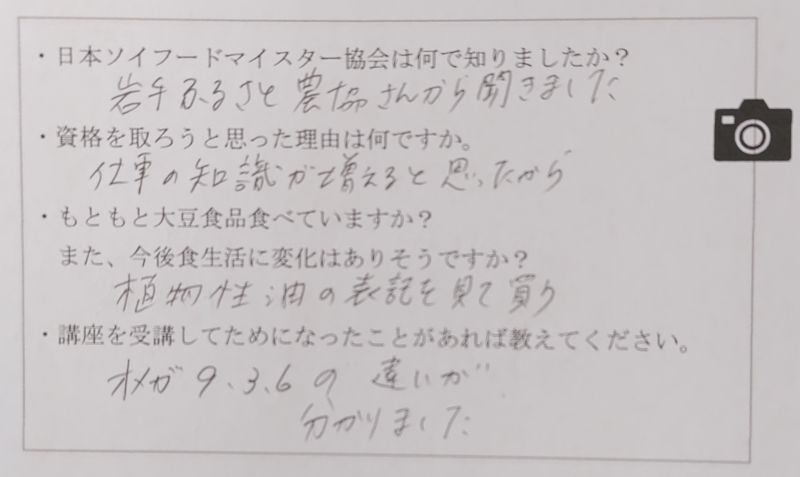 ・日本ソイフードマイスター協会は何で知りましたか？
岩手ふるさと農協さんから聞きました
・資格を取ろうと思った理由は何ですか。
仕事の知識が増えると思ったから
・もともと大豆食品食べていますか？
また、今後食生活に変化はありそうですか？
植物性油の表記を見て買う
・講座を受講してためになったことがあれば教えてください。
オメガ9、3、6の違いが
分かりました